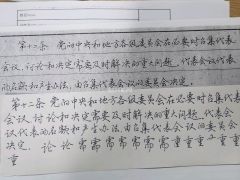 第十二条 党的中央和地方各级委员会在必要时召集代表
会议,讨论和决定需要及时解决的重大问题。代表会议代表
的名额和产生办法,由召集代表会议的委员会决定。
第十二条 党的中央和地方各级委员会在必要时召集代表
会议,讨论和决定需要及时解决的重大问题。代表会
议代表的名额和产生办法,由召集代表会议的委员会
决定。 论 论 常 需 需 需 需 需 重 重 重 重 重
重